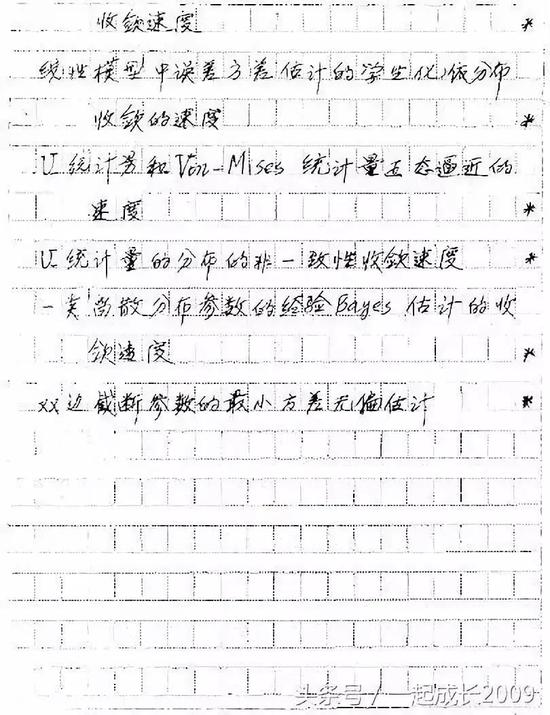 收敛速度 *
线性模型中误差方差估计的学生化依分布
收敛的速度 *
U统计量和Von-Mises 统计量正态逼近的
速度 *
U统计量的分布的非一致性收敛速度
一类离散分布参数的经验Bayes 估计的收
敛速度 *
双边截断参数的最小方差无偏估计 *
头条号 / 一起成长2009